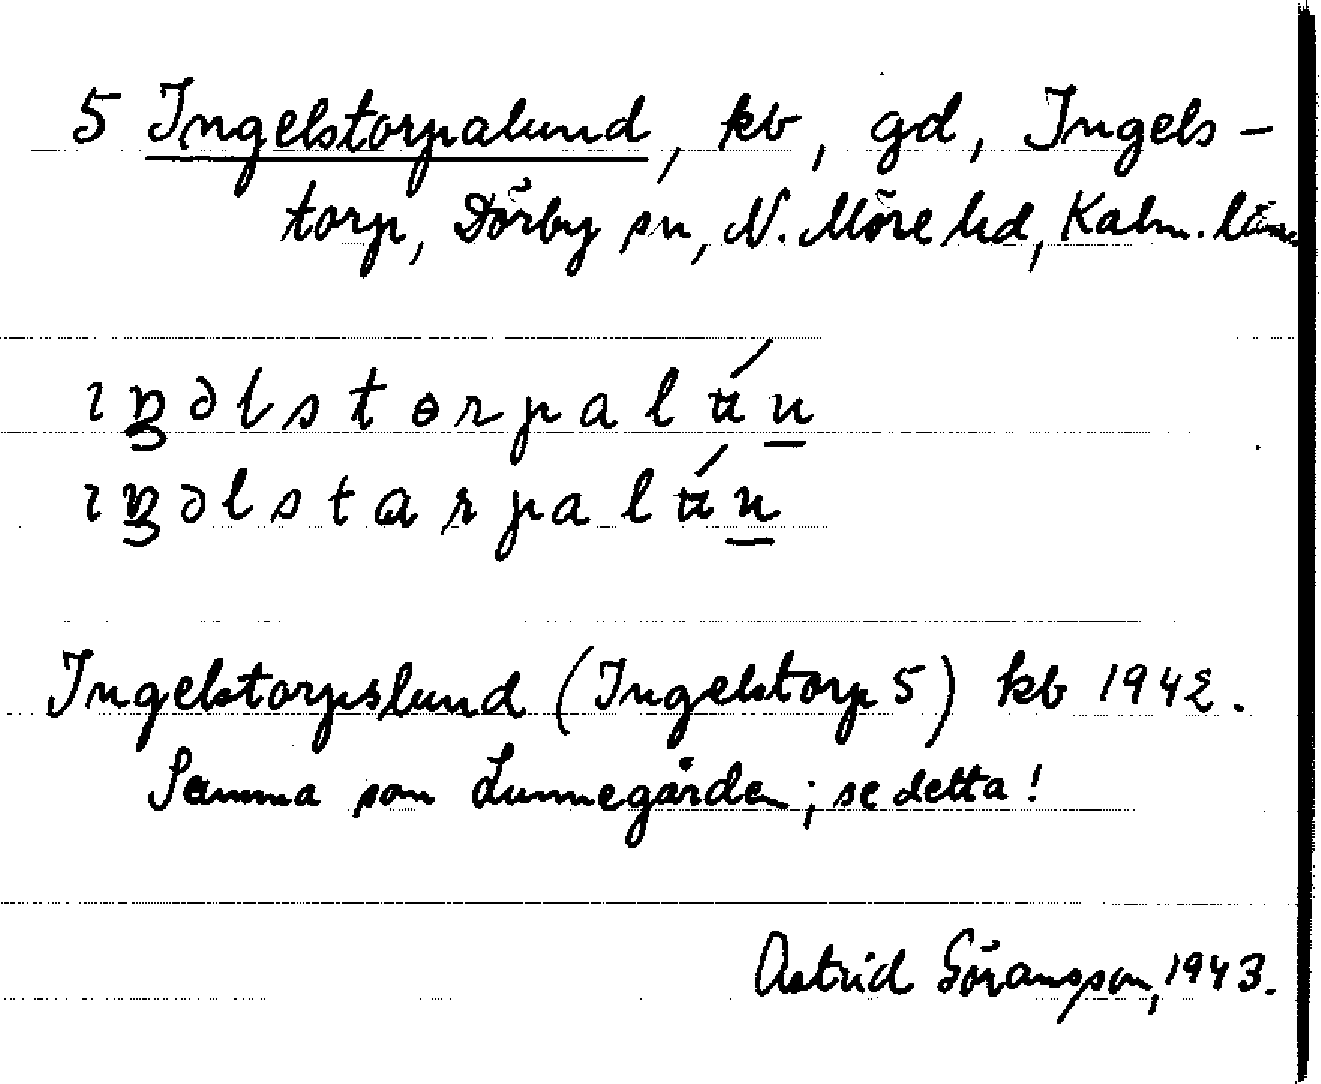 5 Ingelstorpalund, kb, gd, Ingels-
torp, Dörby sn, N. Möre hd, Kalm. län
ıŋəlstɵrpalún
ıŋəlstarpalún
Ingelstorpslund (Ingelstorp 5) kb 1942.
Samma som Lunnegården; se detta!
Astrid Göransson, 1943.